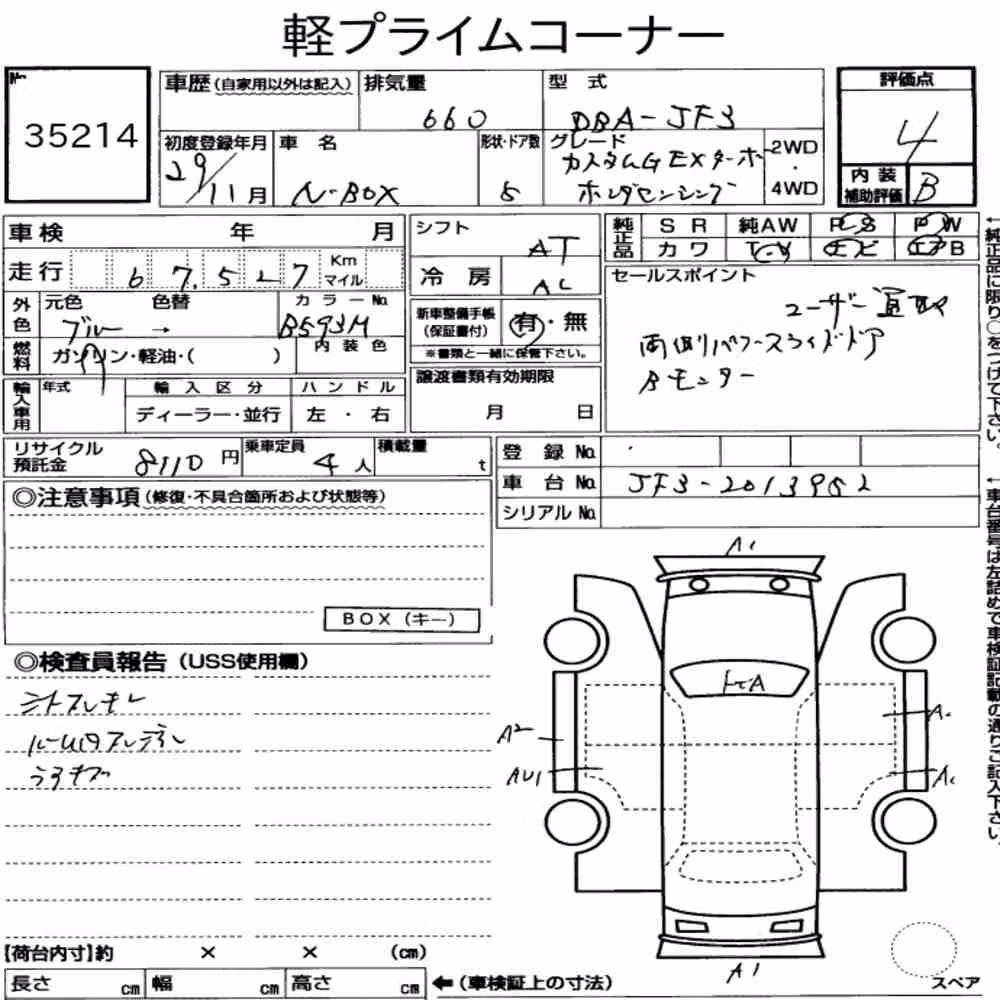 軽プライムコーナー
No.
35214
車歴(自家用以外は記入)
排気量
660
型式
DBA-JF3
評価点
4
初度登録年月
29/11月
車名
N-BOX
形状・ドア数
5
グレード
カスタムG EXターボ
ホンダセンシング
2WD
・
4WD
内装
補助評価
B
車検 年 月
走行 67,527 Km マイル
シフト
AT
冷房
AC
純正品
SR 純AW PS PW
カワ TV ナビ エアB
外色
元色 色替
ブルー →
カラーNo.
B593M
内装色
燃料
ガソリン・軽油・( )
新車整備手帳
(保証書付)
有・無
※書類と一緒に保管下さい。
セールスポイント
ユーザー買取
両側パワースライドドア
Bモニター
輸入車用
年式
輸入区分
ディーラー・並行
ハンドル
左・右
譲渡書類有効期限
月 日
リサイクル
預託金
8110円
乗車定員
4人
積載量
t
登録No.
車台No.
JF3-2013952
シリアルNo.
◎注意事項(修復・不具合箇所および状態等)
BOX(キー)
◎検査員報告(USS使用欄)
シートスレキレ
ルーム内スレ
うすキズ
A1
A2
AU1
A1
【荷台内寸】約 × × (cm)
長さ cm 幅 cm 高さ cm
←(車検証上の寸法)
スペア
←純正品に限り○をつけて下さい。
←車台番号は左詰めで車検証記載の通りご記入下さい。